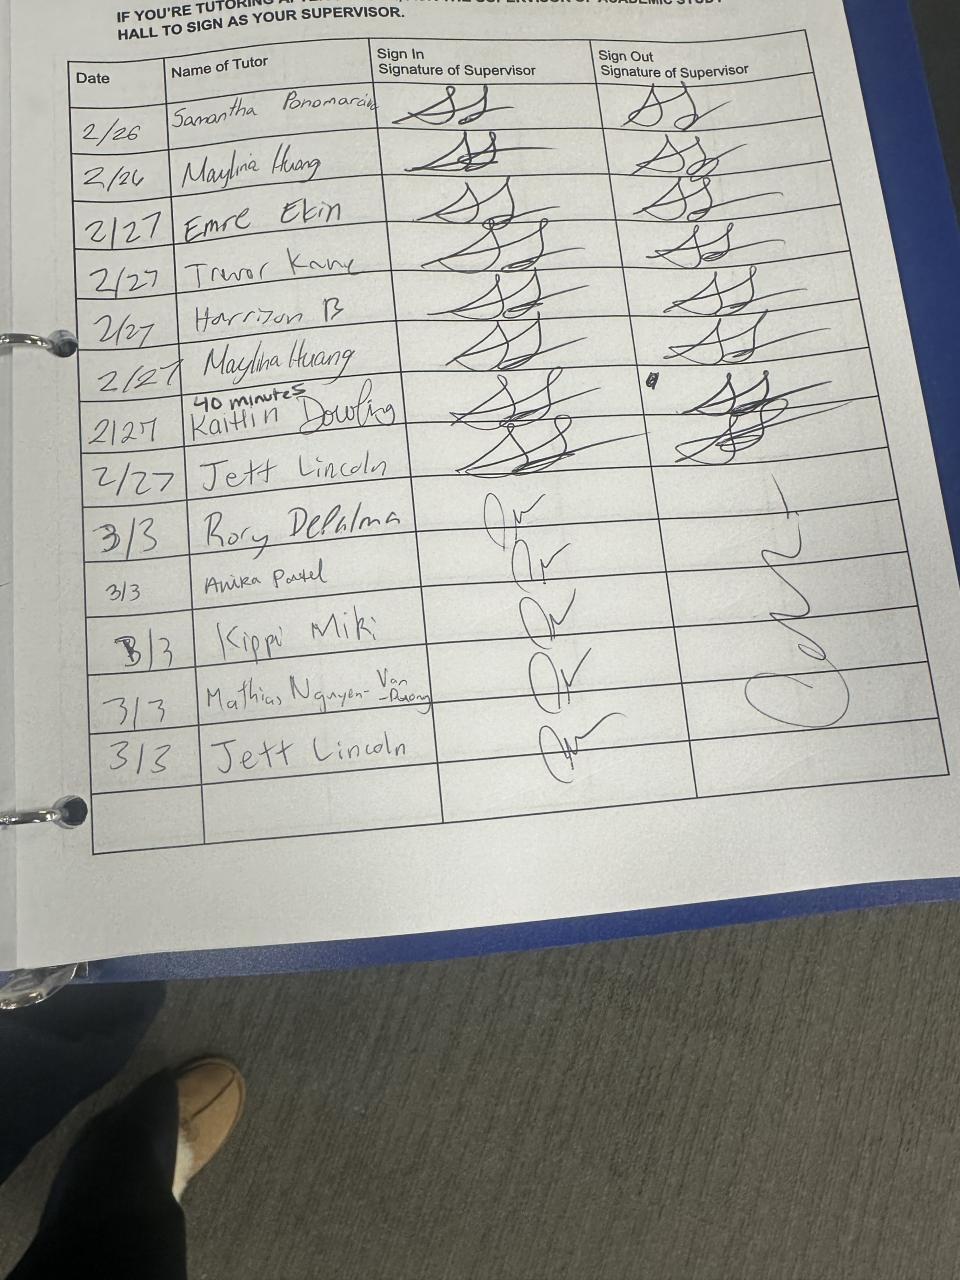 IF YOU'RE TUTORING
HALL TO SIGN AS YOUR SUPERVISOR.
Date Name of Tutor Sign In Signature of Supervisor Sign Out Signature of Supervisor
2/26 Samantha
2/26 Maylina Huang
2/27 Emre Ekin
2/27 Trevor Kane
2/27 Harrison B
2/27 Maylina Huang
40 minutes
2/27 Kaitlin Dowling
2/27 Jett Lincoln
3/3 Rory DePalma
3/3 Anika Patel
3/3 Kippi Miki
3/3 Mathias Nguyen-Van
-Duong
3/3 Jett Lincoln